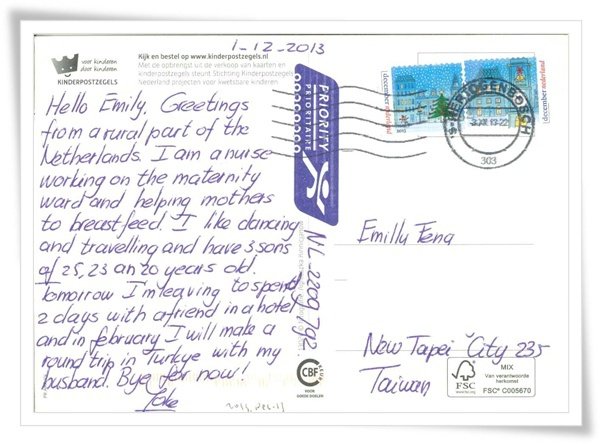 1-12-2013
voor kinderen
door kinderen
KINDERPOSTZEGELS
Kijk en bestel op www.kinderpostzegels.nl
Met de opbrengst uit de verkoop van kaarten en
kinderpostzegels steunt Stichting Kinderpostzegels
Nederland projecten voor kwetsbare kinderen.
Hello Emily. Greetings
from a rural part of the
Netherlands. I am a nurse
working on the maternity
ward and helping mothers
to breastfeed. I like dancing
and travelling and have 3 sons
of 25, 23 an 20 years old.
Tomorrow I'm leaving to spend
2 days with a friend in a hotel
and in february I will make a
round trip in Turkye with my
husband. Bye for now!
PRIORITY
PRIORITAIRE
NL-2209792
december nederland
2013
december nederland
'S-HERTOGENBOSCH
303
Emilly Feng
New Taipei City 235
Taiwan
CBF
KEUR
VOOR
GOEDE DOELEN
FSC
www.fsc.org
MIX
Van verantwoorde
herkomst
FSC® C005670